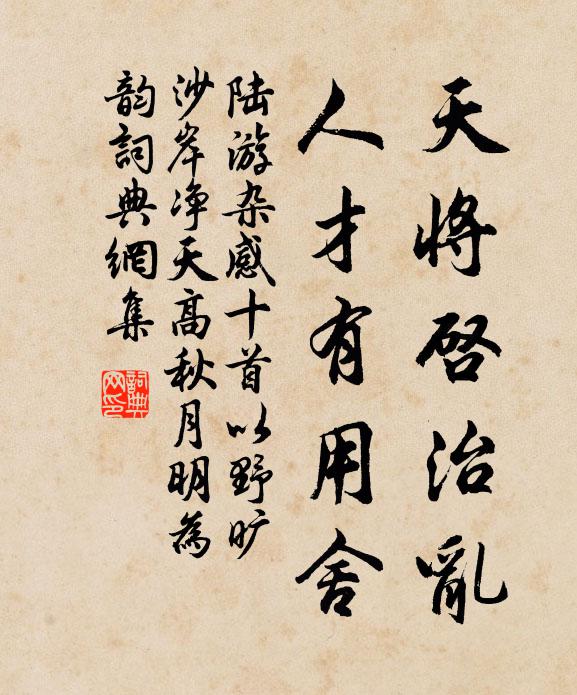 天將啓治亂
人才有用舍
陆游杂感十首以野旷
沙岸净天高秋月明為
韵詞典網集
詞典
网印